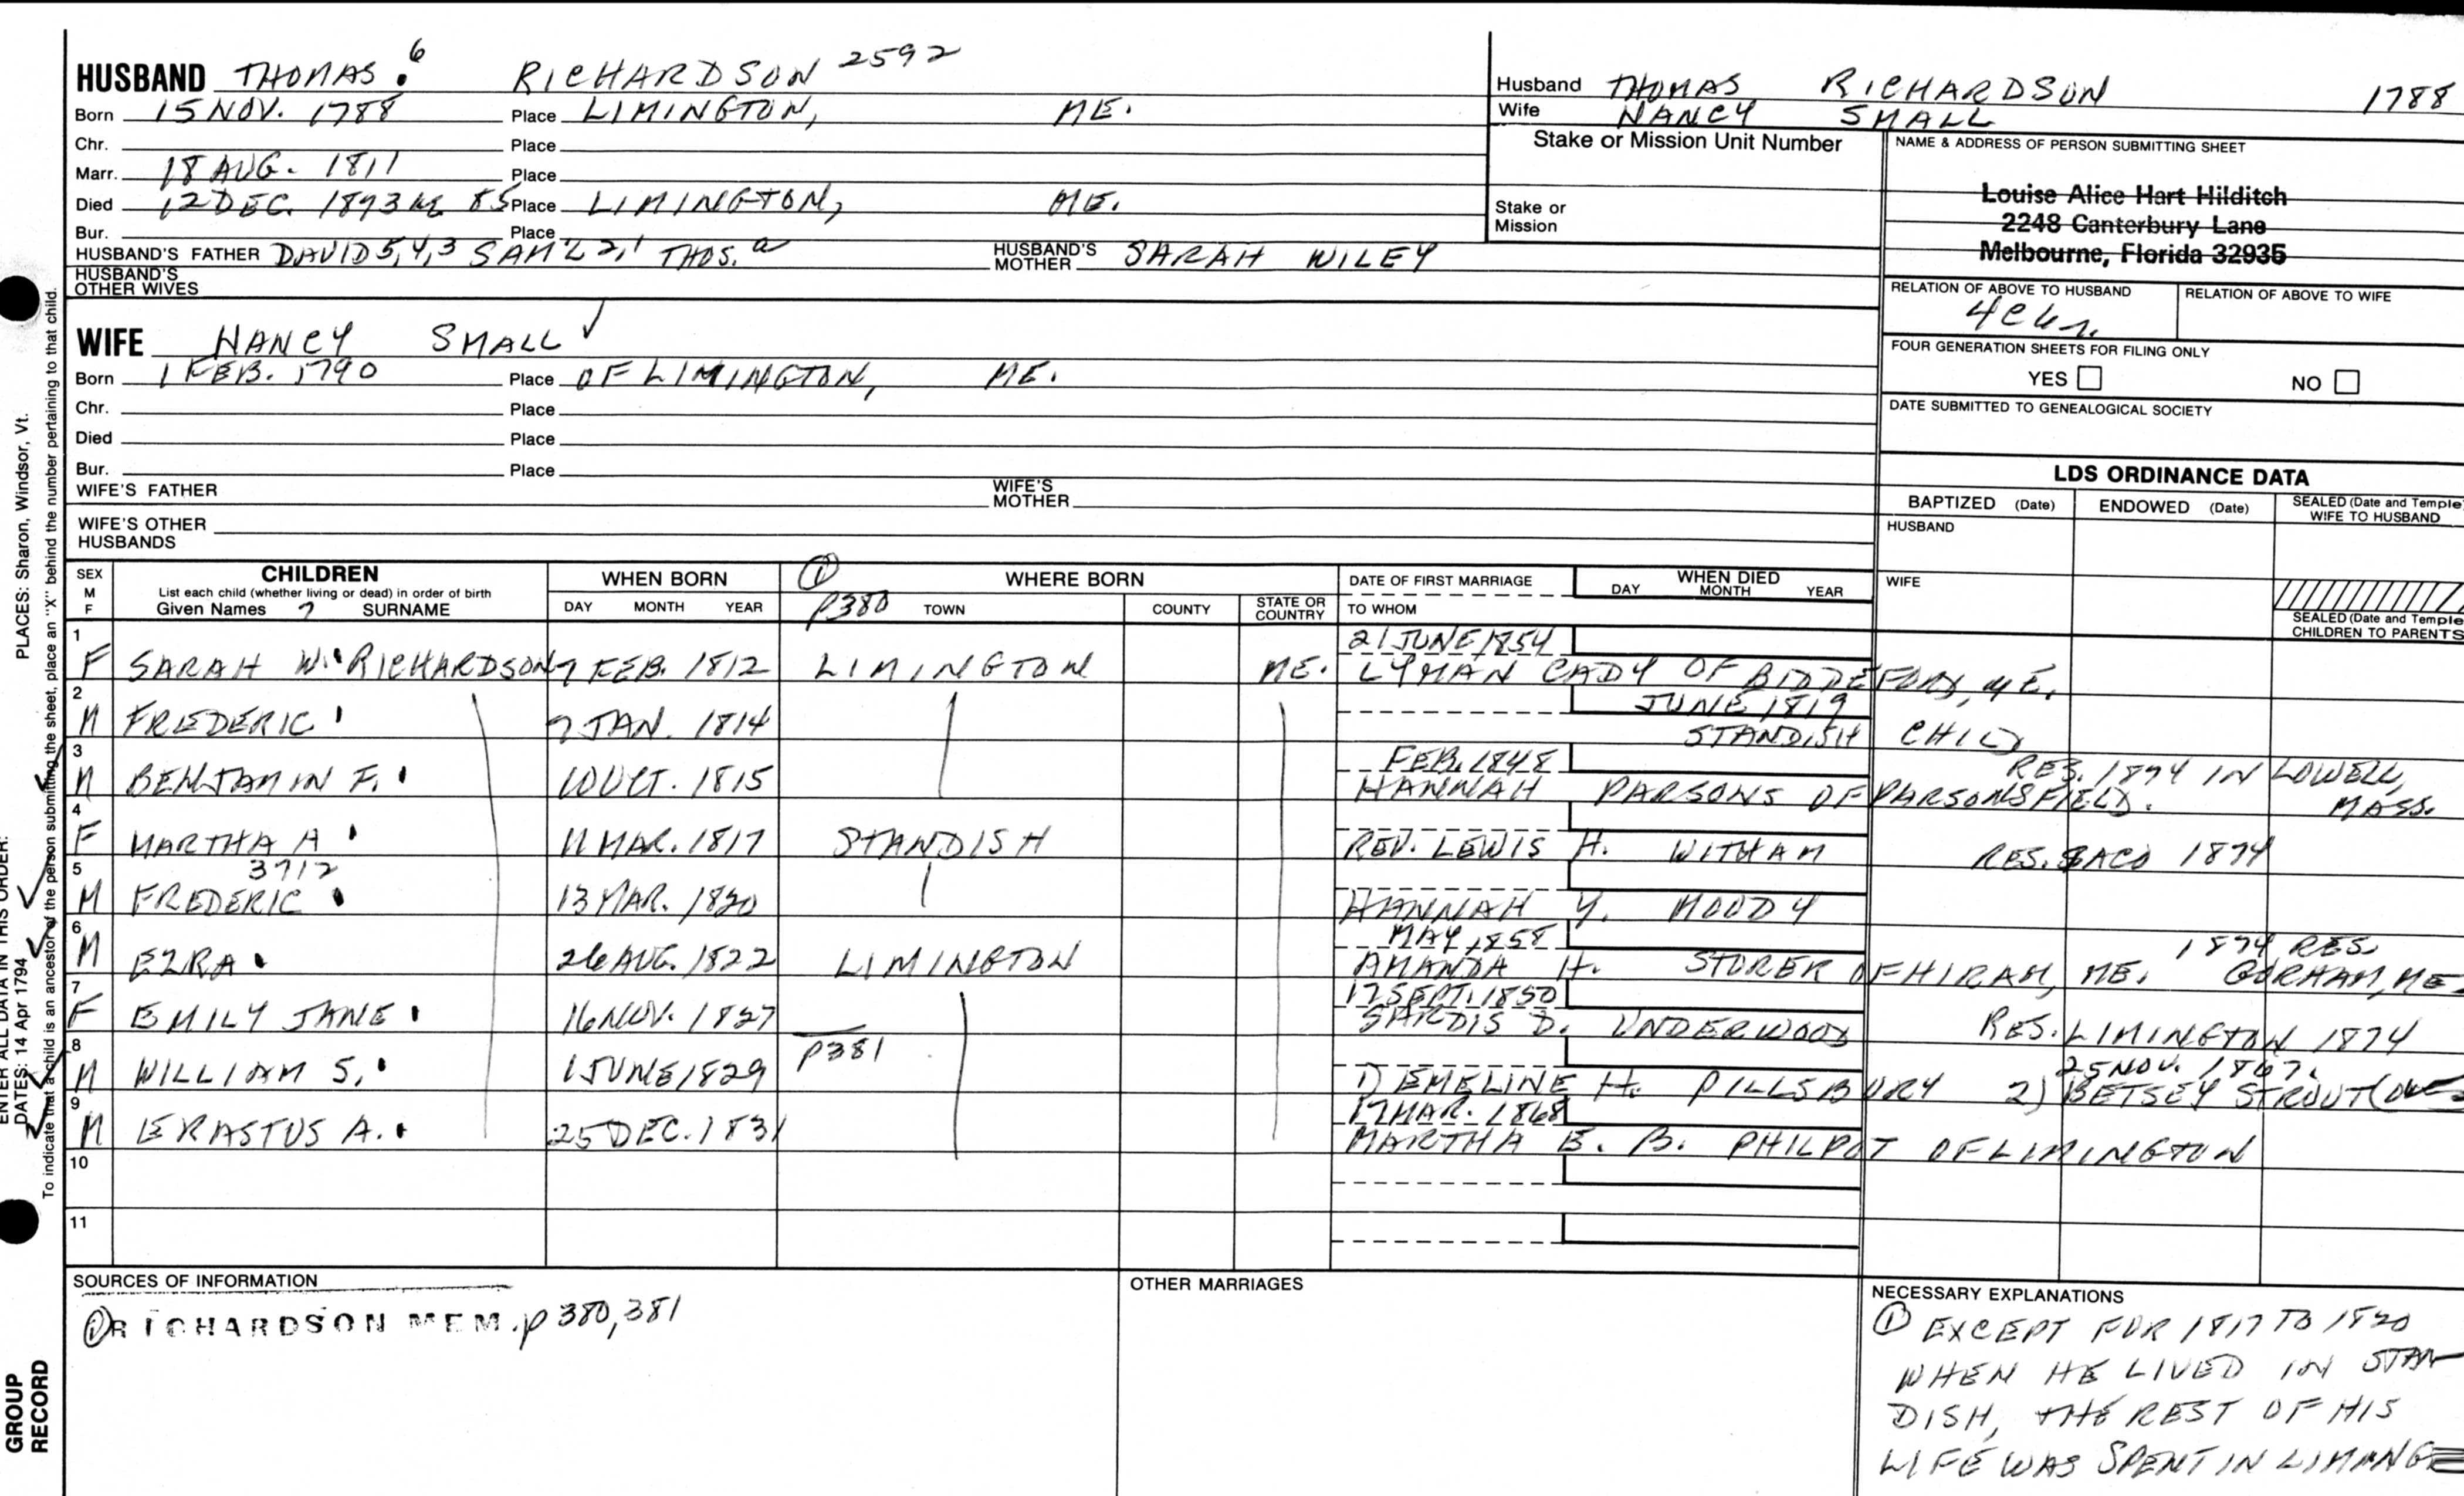 HUSBAND THOMAS. 6 RICHARDSON 2592
Born 15 NOV. 1788 Place LIMINGTON, ME.
Chr. Place
Marr. 18 AUG. 1811 Place
Died 12 DEC. 1873 85 Place LIMINGTON, ME.
Bur. Place
HUSBAND'S FATHER DAVID 5,4,3 SAM'L 2,1 THOS. a HUSBAND'S MOTHER SARAH WILEY
HUSBAND'S OTHER WIVES
Husband THOMAS RICHARDSON 1788
Wife NANCY SMALL
Stake or Mission Unit Number
Stake or Mission
NAME & ADDRESS OF PERSON SUBMITTING SHEET
Louise Alice Hart Hilditch
2248 Canterbury Lane
Melbourne, Florida 32935
RELATION OF ABOVE TO HUSBAND RELATION OF ABOVE TO WIFE
FOUR GENERATION SHEETS FOR FILING ONLY
YES NO
DATE SUBMITTED TO GENEALOGICAL SOCIETY
WIFE NANCY SMALL ✓
Born 1 FEB. 1790 Place OF LIMINGTON, ME.
Chr. Place
Died Place
Bur. Place
WIFE'S FATHER WIFE'S MOTHER
WIFE'S OTHER HUSBANDS
LDS ORDINANCE DATA
BAPTIZED (Date) ENDOWED (Date) SEALED (Date and Temple) WIFE TO HUSBAND
HUSBAND
WIFE
SEALED (Date and Temple) CHILDREN TO PARENTS
SEX M F CHILDREN WHEN BORN ① WHERE BORN DATE OF FIRST MARRIAGE WHEN DIED
List each child (whether living or dead) in order of birth
Given Names 7 SURNAME DAY MONTH YEAR P380 TOWN COUNTY STATE OR COUNTRY TO WHOM DAY MONTH YEAR
1 21 JUNE 1854
F SARAH W. RICHARDSON 7 FEB. 1812 LIMINGTON ME. LYMAN CADY OF BIDDEFORD, ME.
2 JUNE 1819
M FREDERIC 7 JAN. 1814 STANDISH CHILD
3 FEB. 1848 RES. 1874 IN LOWELL, MASS.
M BENJAMIN F. 10 OCT. 1815 HANNAH PARSONS OF PARSONSFIELD.
4
F MARTHA A 11 MAR. 1817 STANDISH REV. LEWIS H. WITHAM RES. SACO 1874
5 3712
M FREDERIC 13 MAR. 1820 HANNAH Y. MOODY
6 MAY 1858 1874 RES.
M EZRA 26 AUG. 1822 LIMINGTON AMANDA H. STORER OF HIRAM, ME. GORHAM, ME
7 17 SEPT. 1850
F EMILY JANE 16 NOV. 1827 SARDIS D. UNDERWOOD RES. LIMINGTON 1874
8 P381 25 NOV. 1867.
M WILLIAM S. 1 JUNE 1829 1) EMELINE H. PILLSBURY 2) BETSEY STROUT
9 17 MAR. 1868
M ERASTUS A. 25 DEC. 1831 MARTHA E. B. PHILPOT OF LIMINGTON
10
11
SOURCES OF INFORMATION
① RICHARDSON MEM. p 380, 381
OTHER MARRIAGES
NECESSARY EXPLANATIONS
① EXCEPT FOR 1817 TO 1820
WHEN HE LIVED IN STAN
DISH, THE REST OF HIS
LIFE WAS SPENT IN
ENTER ALL DATA IN THIS ORDER:
DATES: 14 Apr 1794
PLACES: Sharon, Windsor, Vt.
To indicate that a child is an ancestor of the person submitting the sheet, place an "X" behind the number pertaining to that child.
GROUP RECORD